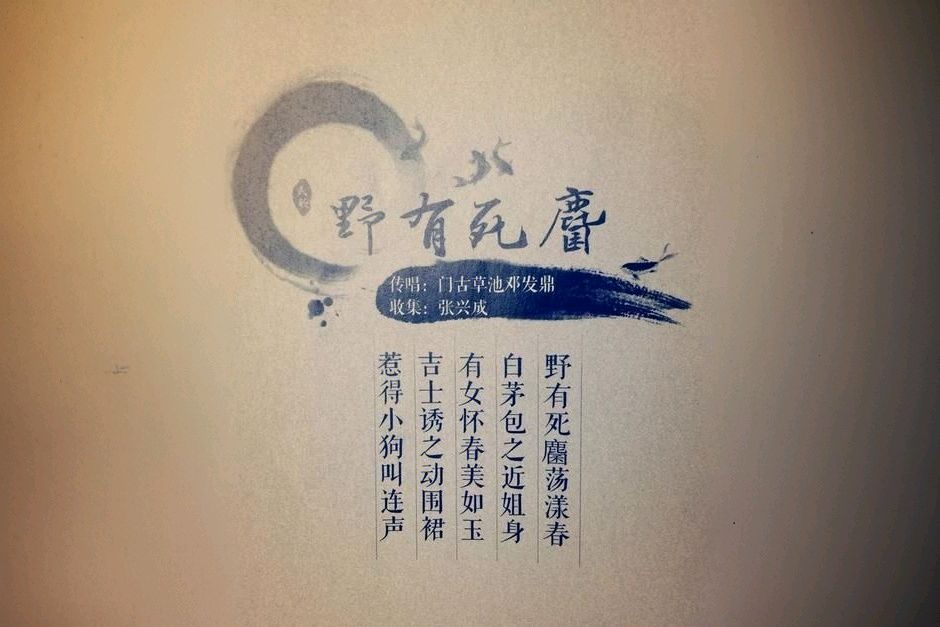 野有死麕
传唱：门古草池邓发鼎
收集：张兴成
野有死麕荡漾春
白茅包之近姐身
有女怀春美如玉
吉士诱之动围裙
惹得小狗叫连声